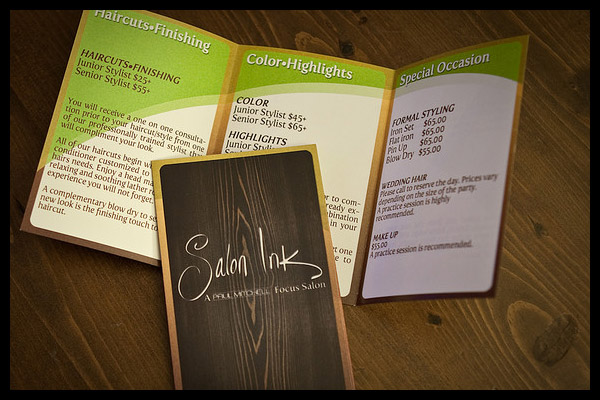 Haircuts•Finishing
HAIRCUTS•FINISHING
Junior Stylist $25+
Senior Stylist $55+
You will receive a one on one consulta-
tion prior to your haircut/style from one
of our professionally trained stylist tha
will compliment your look.
All of our haircuts begin w
conditioner customized to
hairs needs. Enjoy a head m
relaxing and soothing lather
experience you will not forget.
A complementary blow dry to se
new look is the finishing touch to
haircut.
Color•Highlights
COLOR
Junior Stylist $45+
Senior Stylist $65+
HIGHLIGHTS
Junior Stylist
Senior
to com-
ready ex-
mbination
in your
get one
e to
Special Occasion
FORMAL STYLING
Iron Set $65.00
Flat Iron $65.00
Pin Up $65.00
Blow Dry $55.00
WEDDING HAIR
Please call to reserve the day. Prices vary
depending on the size of the party.
A practice session is highly
recommended.
MAKE UP
$55.00
A practice session is recommended.
Salon Ink
A PAUL MITCHELL Focus Salon